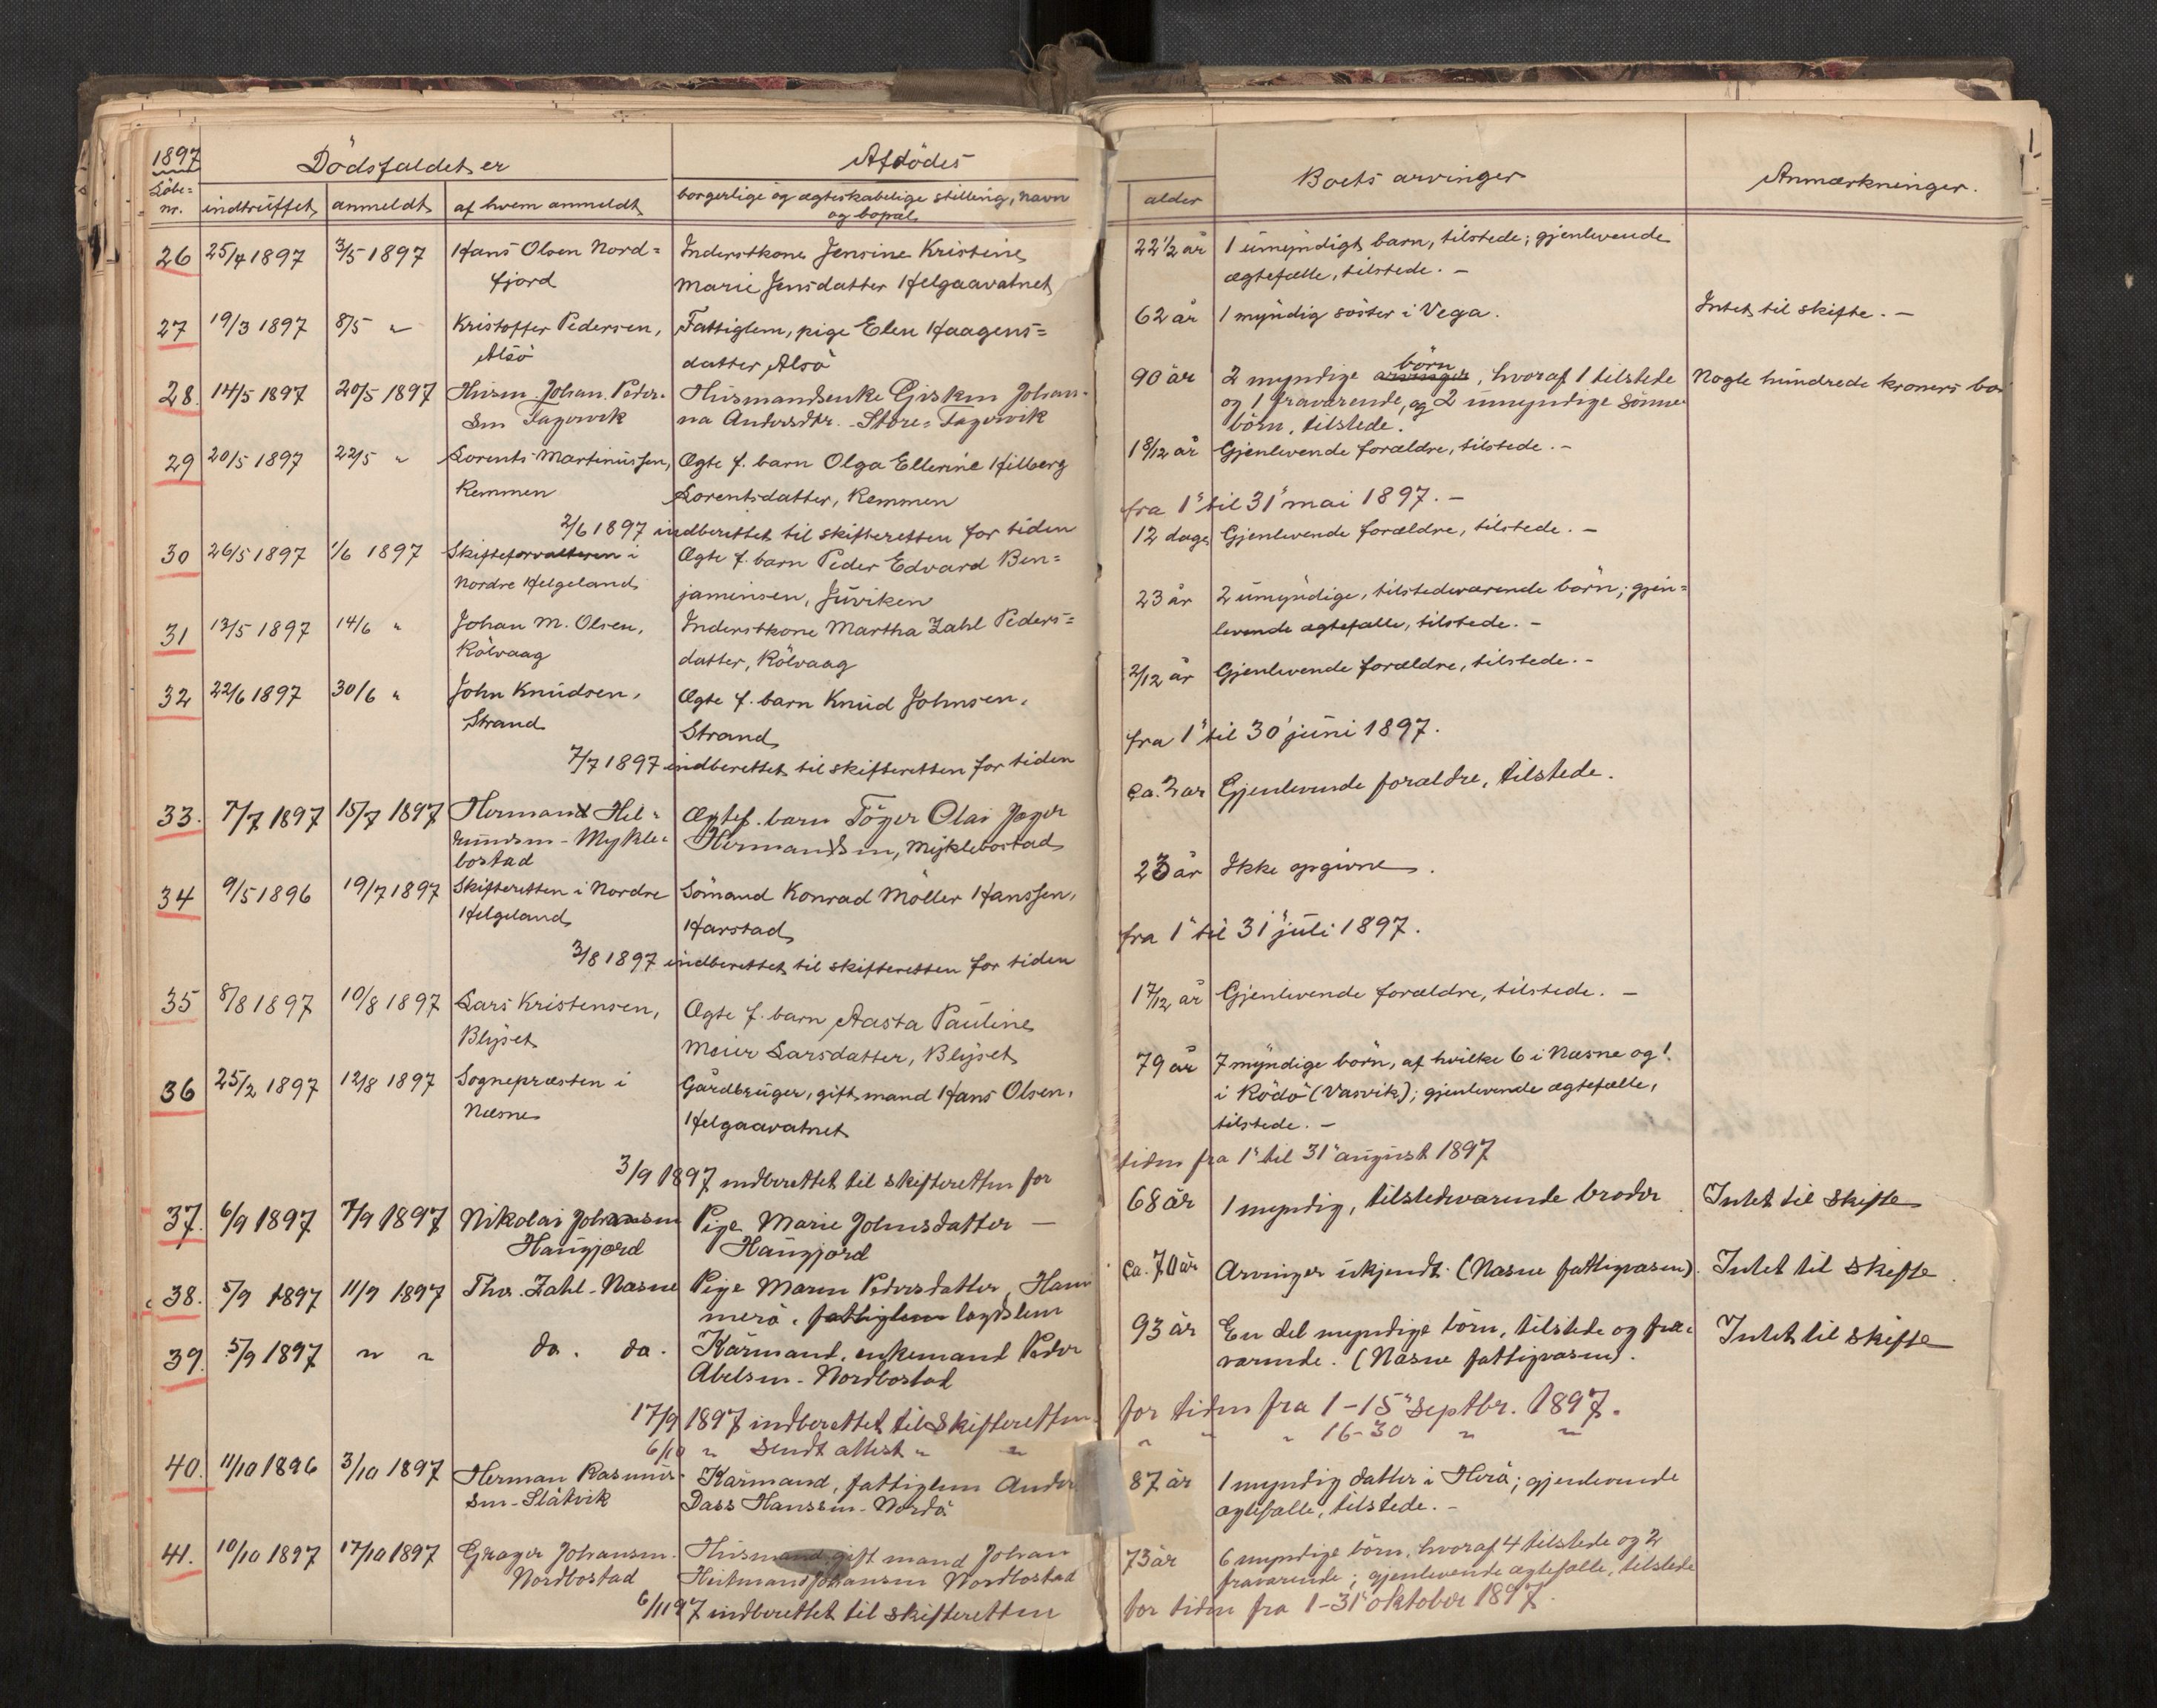 1897
Dödsfaldet er
Afdödes
Löbe=
nr.
indtruffet
anmeldt
af hvem anmeldt
borgerlige og ægteskabelige stilling, navn
og bopæl
alder
Boets arvinger
Anmærkninger.
26 25/4 1897 3/5 1897 Hans Olsen Nord= Inderstkone Jensine Kristine 22 1/2 år 1 umyndigt barn, tilstede; gjenlevende
fjord Marie Jensdatter Helgaavatnet ægtefælle, tilstede. —
27 19/3 1897 8/5 " Kristoffer Pedersen, Fattiglem, pige Elen Haagens= 62 år 1 myndig söster i Vega. Intet til skifte. —
Alsö datter, Alsö
28. 14/5 1897 20/5 1897 Husm. Johan Peder- Husmandsenke Gisken Johan- 90 år 2 myndige arvinger börn, hvoraf 1 tilstede Nogle hundrede kroners bo
sen Fagervik na Andersdtr. Store-Fagervik og 1 fraværende, og 2 umyndige sönne-
börn, tilstede.
29 20/5 1897 22/5 " Lorents Martinussen, Ægte f. barn Olga Ellerine Hilberg 1 8/12 år Gjenlevende forældre, tilstede. —
Remmen Lorentsdatter, Remmen
2/6 1897 indberettet til skifteretten for tiden fra 1' til 31' mai 1897. —
30 26/5 1897 1/6 1897 Skifteforvalteren i Ægte f. barn Peder Edvard Ben= 12 dage Gjenlevende forældre, tilstede. —
Nordre Helgeland jaminsen, Juviken
31 13/5 1897 14/6 " Johan M. Olsen, Inderstkone Martha Zahl Peders= 23 år 2 umyndige, tilstedeværende börn; gjen=
Kölvaag datter, Kölvaag levende ægtefælle, tilstede. —
32 22/6 1897 30/6 " John Knudsen, Ægte f. barn Knud Johnsen, 2/12 år Gjenlevende forældre, tilstede. —
Strand Strand
7/7 1897 indberettet til skifteretten for tiden fra 1' til 30' juni 1897.
33. 7/7 1897 15/7 1897 Hermand Hil- Ægtef. barn Töger Olai Jager ca. 2 år Gjenlevende forældre, tilstede.
Mykle- Hermandsen, Myklebostad
bostad
34 9/5 1896 19/7 1897 Skifteretten i Nordre Sömand Konrad Möller Hanssen, 23 år Ikke opgivne.
Helgeland Harstad
3/8 1897 indberettet til skifteretten for tiden fra 1' til 31' juli 1897.
35 8/8 1897 10/8 1897 Lars Kristensen, Ægte f. barn Aasta Pauline 1 7/12 år Gjenlevende forældre, tilstede. —
Blyset Meier Larsdatter, Blyset
36 25/2 1897 12/8 1897 Sognepræsten i Gårdbruger, gift mand Hans Olsen, 79 år 7 myndige börn, af hvilke 6 i Næsne og 1
Næsne Helgaavatnet i Rödö (Vasvik); gjenlevende ægtefælle,
tilstede. —
3/9 1897 indberettet til skifteretten for tiden fra 1' til 31' august 1897
37. 6/9 1897 7/9 1897 Nikolai Johansen Pige Marie Johnsdatter — 68 år 1 myndig, tilstedeværende broder Intet til skifte
Haugjord Haugjord
38. 5/9 1897 11/9 1897 Thos. Zahl - Næsne Pige Maren Pedersdatter, Ham ca. 70 år Arvinger ukjendt. (Næsne fattigvæsen). Intet til skifte.
merö. fattiglem lægdslem
39. 5/9 1897 " " do. do. Kårmand, enkemand Peder 93 år En del myndige börn, tilstede og fra-
Abelsen - Nordbostad værende. (Næsne fattigvæsen). Intet til skifte
17/9 1897 indberettet til skifteretten for tiden fra 1-15' septbr. 1897.
6/10 " sendt attest " " " " " 16-30 " "
40. 11/10 1896 3/10 1897 Herman Rasmus- Kårmand, fattiglem Anders 87 år 1 myndig datter i Herö; gjenlevende
sen - Slåtvik Dass Hanssen - Nordö ægtefælle, tilstede. —
41. 10/10 1897 17/10 1897 Grager Johansen. Husmand gift mand Johan 73 år 6 myndige börn, hvoraf 4 tilstede og 2
Nordbostad Johansen Nordbostad fraværende; gjenlevende ægtefælle, tilstede
6/11 97 indberettet til skifteretten for tiden fra 1-31' oktober 1897.